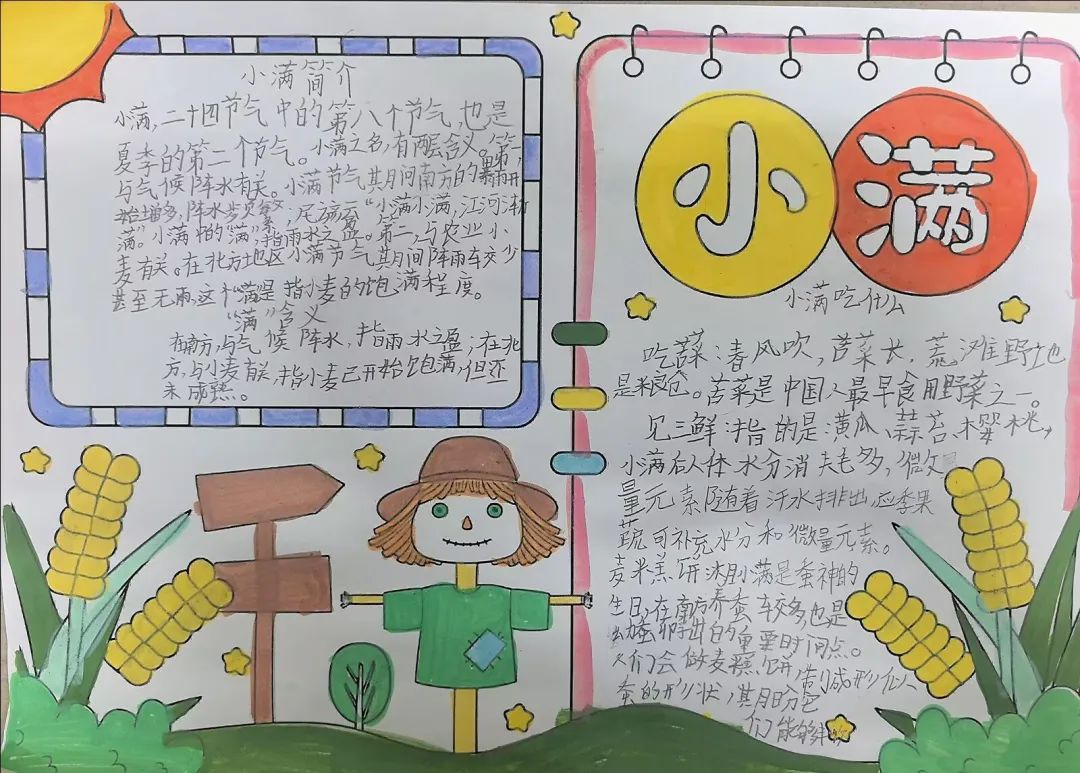 小满简介
小满,二十四节气中的第八个节气,也是
夏季的第二个节气。小满之名,有两层含义。第一,
与气候降水有关。小满节气其间南方的暴雨开
始增多,降水频繁,民谚云“小满小满,江河渐
满”。小满中的“满”,指雨水之盈。第二,与农业小
麦有关。在北方地区小满节气其间降雨较少
甚至无雨,这个“满”是指小麦的饱满程度。
“满”含义
在南方,与气候降水,指雨水之盈;在北
方,与小麦有关,指小麦已开始饱满,但还
未成熟。
小满
小满吃什么
吃苦菜:春风吹,苦菜长,荒滩野地
是粮仓。苦菜是中国人最早食用野菜之一。
见三鲜:指的是:黄瓜、蒜苔、樱桃,
小满后人体水分消耗多,微
量元素随着汗水排出,应季果
蔬可补充水分和微量元素。
麦米糕饼:小满是蚕神的
生日,在南方养蚕较多,也是
幼蚕孵出的重要时间点。
人们会做麦糕饼,制成形似
蚕的形状,其盼
们能够